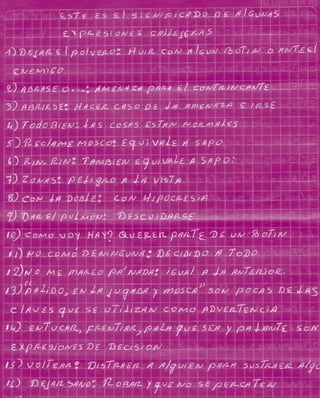 ESTE ES El SIGNIFICADO DE AlGUNAS
EXPRESIONES CAllEJERAS
1) DEJAR El POlVERO: HUIR CON AlGUN BOTIN O ANTE El
ENEMIGO
2) ABRASE O...: AMENAZA PARA El CONTRINCANTE
3) ABRIRSE: HACER CASO DE LA AMENAZA E IRSE
4) TODO BIEN: LAS COSAS ESTAN NORMALES
5) MOSCO: EQUIVALE A SAPO
6) RIN.RIN: TAMBIEN EQUIVALE A SAPO:
7) ZONAS: PELIGRO A LA VISTA
8) CON LA DOBLE: CON HIPOCRESIA
9) DAR El PULMON: DESCUIDARSE
10) COMO VOY HAY? QUERER PARTE DE UN BOTIN
11) NO COMO DE NINGUNA: DECIDIDO A TODO
12) NO ME MAREO PA'NADA: IGUAL A LA ANTERIOR
13) "PALIDO, EN LA JUGADA Y MOSCA" SON POCAS DE LAS
CLAVES QUE SE UTILIZAN COMO ADVERTENCIA
14) ENTUCAR, FRENTIAR, PALA QUE SEA Y PA LANTE SON
EXPRESIONES DE DECISION
15) VOLTEAR: DISTRAER A AlGUIEN PARA SUSTRAER AlGO
16) DEJAR SANO: ROBAR Y QUE NO SE PERCATEN